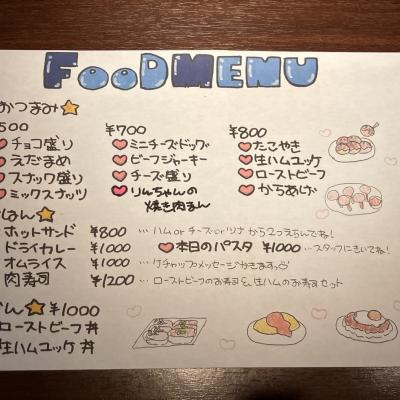 FOODMENU
おつまみ
500
チョコ盛り
えだまめ
スナック盛り
ミックスナッツ
¥700
ミニチーズドッグ
ビーフジャーキー
チーズ盛り
りんちゃんの
焼き肉まん
¥800
たこやき
生ハムユッケ
ローストビーフ
からあげ
ごはん
ホットサンド ¥800 …ハムorチーズorツナから2つえらんでね!
ドライカレー ¥1000 本日のパスタ ¥1000 …スタッフにきいてね!
オムライス ¥1000 …ケチャップメッセージかきますっ
肉寿司 ¥1200 …ローストビーフのお寿司&生ハムのお寿司セット
¥1000
ローストビーフ丼
生ハムユッケ丼